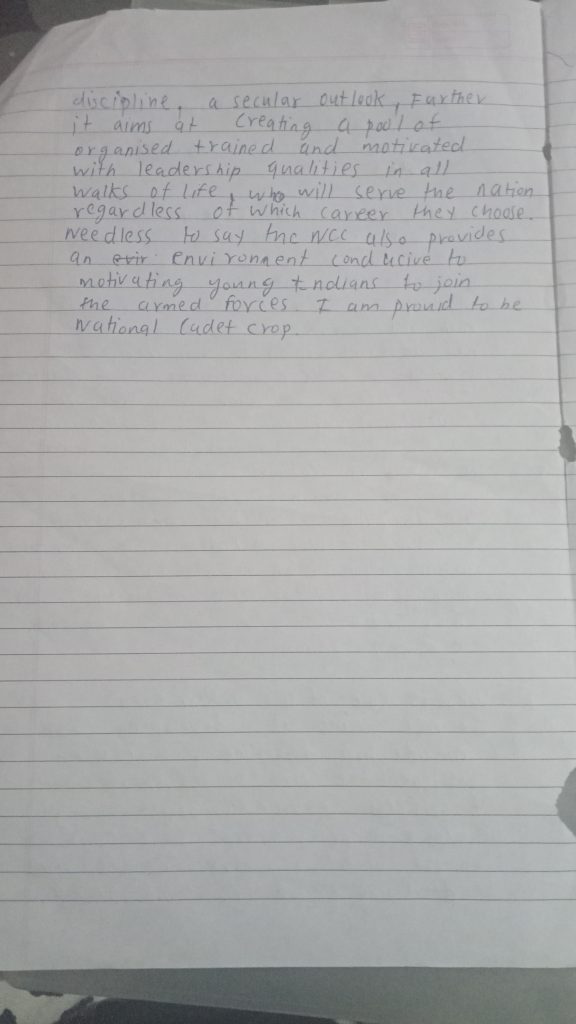 discipline, a secular outlook, Further
it aims at creating a pool of
organised trained and motivated
with leadership qualities in all
walks of life, who will serve the nation
regardless of which career they choose.
Needless to say the NCC also provides
an evir environment conducive to
motivating young Indians to join
the armed forces. I am proud to be
National Cadet crop.